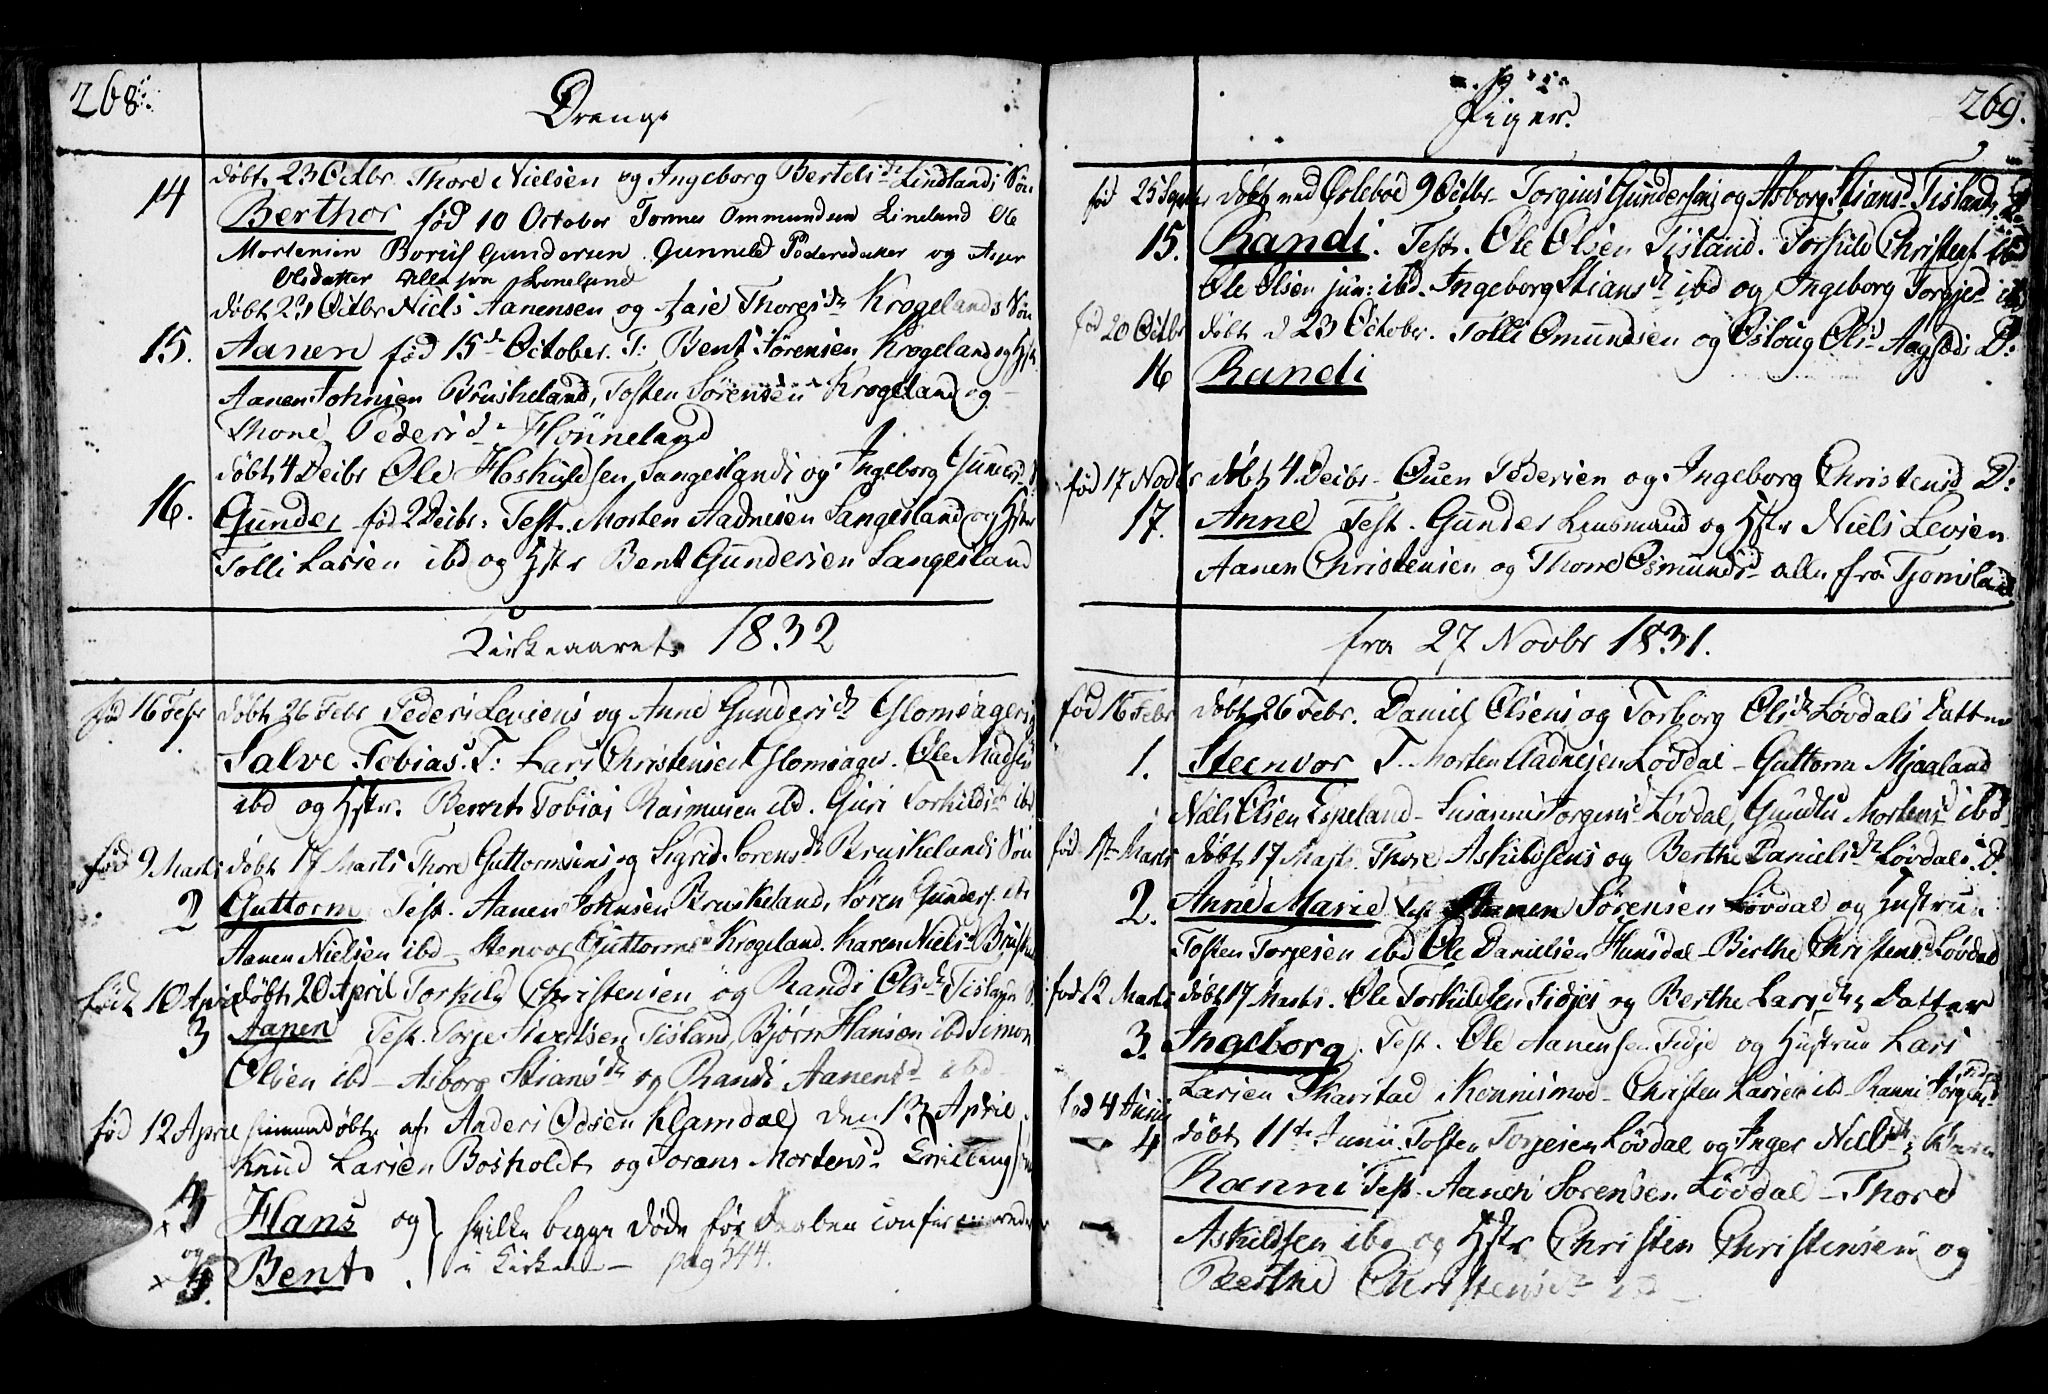 268.
Drenge
døbt 23 Octbr Thore Nielsen og Ingeborg Bertelsd. Lindlands Søn
14 Berthor fød 10 October Tormes Ommundsen Lineland Ole
Mortensen Gundersen Gunneld Pedersdatter og
Olsdatter alle fra Lineland
døbt 23 Octbr Niels Aanensen og Aase Thoresdr Krogelands Søn
15. Aanen fød 15de October. T: Bent Sørensen Krogeland og Hstr
Aanen Johnsen Bruskeland, Tosten Sørensen Krogeland og
Thone Pedersd. Hønneland
døbt 4 Decbr Ole Haskuldsen Sangeslands og Ingeborg Gundersd
16. Gunder fød 2 Decbr: Test. Morten Aadnesen Sangesland og Hstr
Tolli Larsen ibd og Hstr Bent Gundersen Sangesland
Kirkeaaret 1832
fød 16 Febr døbt 26 Febr Peder Levsens og Anne Gundersdr Glomsagers
Salve Tobias. T: Lars Christensen Glomsager. Ole Madsen
ibd og Hstr. Bernt Tobias Rasmusen ibd. Guri Torkildsdr ibd
fød 9 Marts døbt 17 Marts Thore Guttormsens og Sigrid Sorensdr Bruskelands Søn
2 Guttorm Test. Aanen Johnsen Bruskeland, Søren Gunders.
Aanen Nielsen ibd - Stenvor Guttormsd Krogeland. Karen Nielsd
født 10 April døbt 20 April Torkild Christensen og Randi Olsdr Tisland
3 Aanen Test. Torje Sivertsen Tisland, Bjørn Hansen ibd Simon
Olsen ibd - Asborg Stiansdr og Randi Aanensd ibd
fød 12 April hjemmedøbt af Anders Odsen Klamdal, den 13 April.
Knud Larsen Bosholdt og Torans Mortensd. Tvillingsøn
Hans og } hvilke begge døde før Daaben confirmerede
og Bent. i Kirken - pag 544.
269.
Piger.
fød 25 Septbr døbt ved Øslebøe 9 Octbr Torgius Gundersens og Asborg Stiansd Tislands D.
15. Randi. Test. Ole Olsen Tisland. Torkild Christens. ibd
Ole Olsen jun: ibd. Ingeborg Stiansdr ibd og Ingeborg Torgjesd ibd
fød 20 Octbr døbt d 23 October. Tolli Omundsen og Osloug Olsd Aagsæds D:
16 Randi
fød 17 Novbr døbt 4 Decbr - Ouen Pedersen og Ingeborg Christensd D:
17. Anne Test. Gunder Lensmand og Hstr Niels Levsen
Aanen Christensen og Thorre Osmundsd alle fra Tjomsland
fra 27 Novbr 1831.
fød 16 Febr døbt 26 Febr. Daniel Olsens og Torborg Olsdr Løvdals Datter
1. Steenvor T. Morten Aadnesen Løvdal - Guttorm Mjaaland
Niels Olsen Espeland - Susanne Torgersd Løvdal, Mortensd ibd
fød Marts døbt 17 Marts Thore Askildsens og Berthe Danielsdr Løvdals D.
2. Anne Marie Test Aanen Sørensen Løvdal og Hustrue
Tosten Torjesen ibd Ole Danielsen Hunsdal - Birthe Christensd Løvdal
fød 12 Marts døbt 17 Marts. Ole Torkildsen Fidjes og Berthe Larsdrs Datter
3. Ingeborg. Test. Ole Aanensen Fidje og Hustrue Lars
Larsen Skarstad i Kennismoe - Christen Larsen ibd - Ranni Torgersd Fidje
fød 4 Junii
4 døbt 11te Junii. Tosten Torjesen Løvdal og Inger Nielsdrs Barn
Ranni Test. Aanen Sørensen Løvdal - Thore
Askildsen ibd og Hstr Christen Christensen og
Berthe Christensdr ibd -